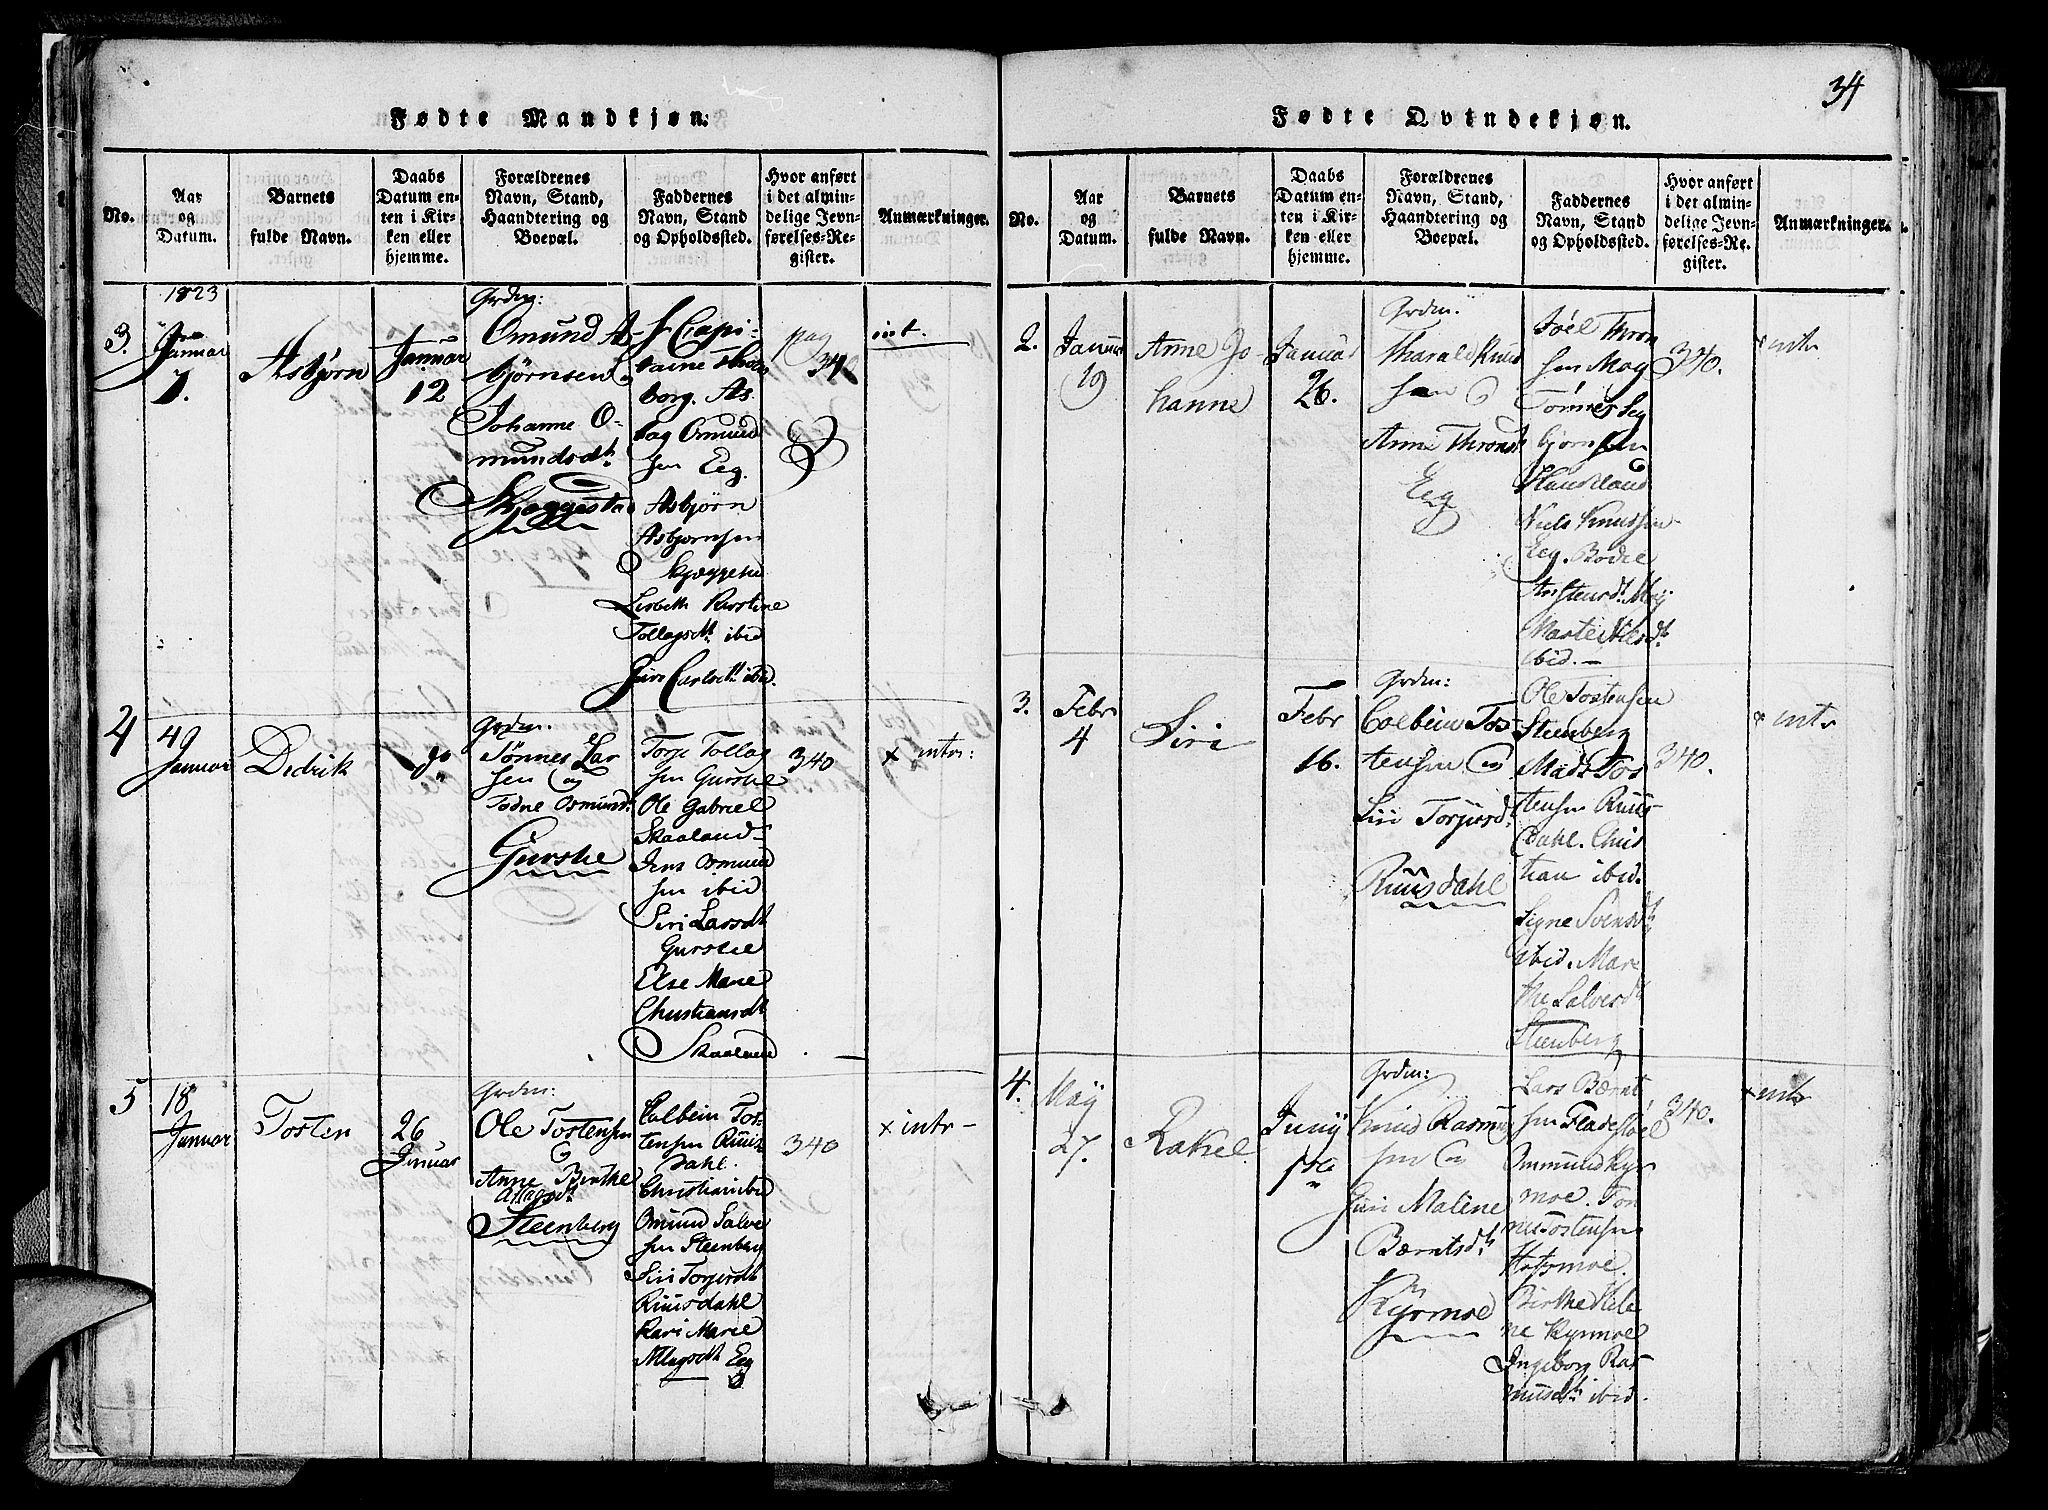 34
Fødte Mandkjøn.
No.
Aar
og
Datum.
Barnets
fulde Navn.
Daabs
Datum en-
ten i Kir-
ken eller
hjemme.
Forældrenes
Navn, Stand,
Haandtering og
Boepæl.
Faddernes
Navn, Stand
og Opholdssted.
Hvor anført
i det almin-
delige Jevn-
førelses-Re-
gister.
Anmærkninger.
3.
1823
Januar
7.
Asbjørn
Januar
12
Grdm:
Omund As-
bjørnsen
Johanne O-
mundsdt.
Skjeggestad
borg. As-
lag Omund
sen Eeg.
Asbjørn
Asbjørnsen
Skjeggestad
Lisbeth Kirstine
Tollagsdt. ibid
Siri Carlsdt. ibid.
pag
340
int.
4
49
Januar
Didrik
do
Grdm.
Tønnes Lar
sen og
Todne Osmundsdt.
Gurstie
Torje Tollag
sen Gurstie
Ole Gabriel
Skaaland
Jens Osmund
sen ibid
Siri Larsdt
Gurstie
Else Marie
Christiansdt
Skaaland
340
x intr:
5
18
Januar
Tosten
26
Januar
Grdm:
Ole Tostensen
og
Anne Birthe
Atlagsdt.
Steenberg
Colbein Tos-
tensen Ruus-
dahl.
Christian ibid
Omund Salve
sen Steenberg
Siri Torjersdt
Ruusdahl
Kari Marie
Atlagsdt Eeg
340
x intr-
Fødte Qvindekjøn.
No.
Aar
og
Datum.
Barnets
fulde Navn.
Daabs
Datum en-
ten i Kir-
ken eller
hjemme.
Forældrenes
Navn, Stand,
Haandtering og
Boepæl.
Faddernes
Navn, Stand
og Opholdssted.
Hvor anført
i det almin-
delige Jevn-
førelses-Re-
gister.
Anmærkninger.
2.
Januar
19
Anne Jo-
hanne
Januar
26.
Grdm.
Tharald Knud
sen og
Anne Thronsdt
Eeg
Joel Thron
sen Moy
Tønnes Seg
bjørnsen
Haughland
Niels Knudsen
Eeg. Bodel
Moy
Marte Nilsdt.
ibid.-
340.
x intr
3.
Febr
4
Siri
Febr
16.
Grdm:
Colbein Tos-
tensen og
Siri Torjersdt.
Ruusdahl
Ole Tostensen
Steenberg
Mads Tos
tensen Ruus-
dahl. Chris
tian ibid.
Signe Svensdt.
ibid. Mar-
the Salvesdt
Steenberg
340.
x intr
4.
May
27.
Rakel
Juny
1ste
Grdm:
Knud Rasmu
sen og
Siri Malene
Bærntsdt.
Kyrmoe
Lars Bærnt
sen Fladstøe
Ommund Kyr
moe. Tøn
nes Tostensen
Hofsmoe.
Birthe Hele
ne Kyrmoe
Ingeborg Ras-
musdt. ibid.
340.
x intr